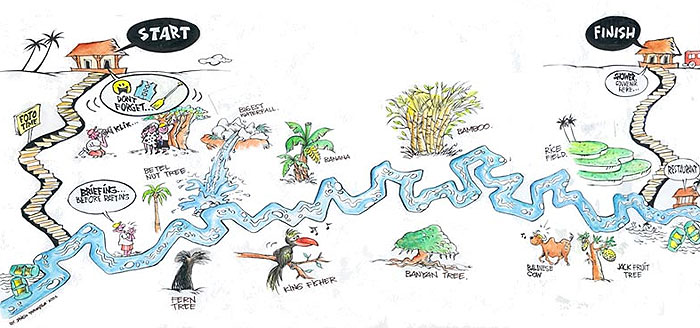 START
FINISH
DON'T
FORGET...
FOTO
TIME
KLIK...
BIGEST
WATERFALL.
BETEL
NUT TREE
BANANA
BAMBOO.
RICE
FIELD.
SHOWER
HERE...
RESTAURANT
BRIEFING...
BEFORE RAFTING
FERN
TREE
KING FISHER
BANYAN TREE.
BALINESE
COW
JACK FRUIT
TREE